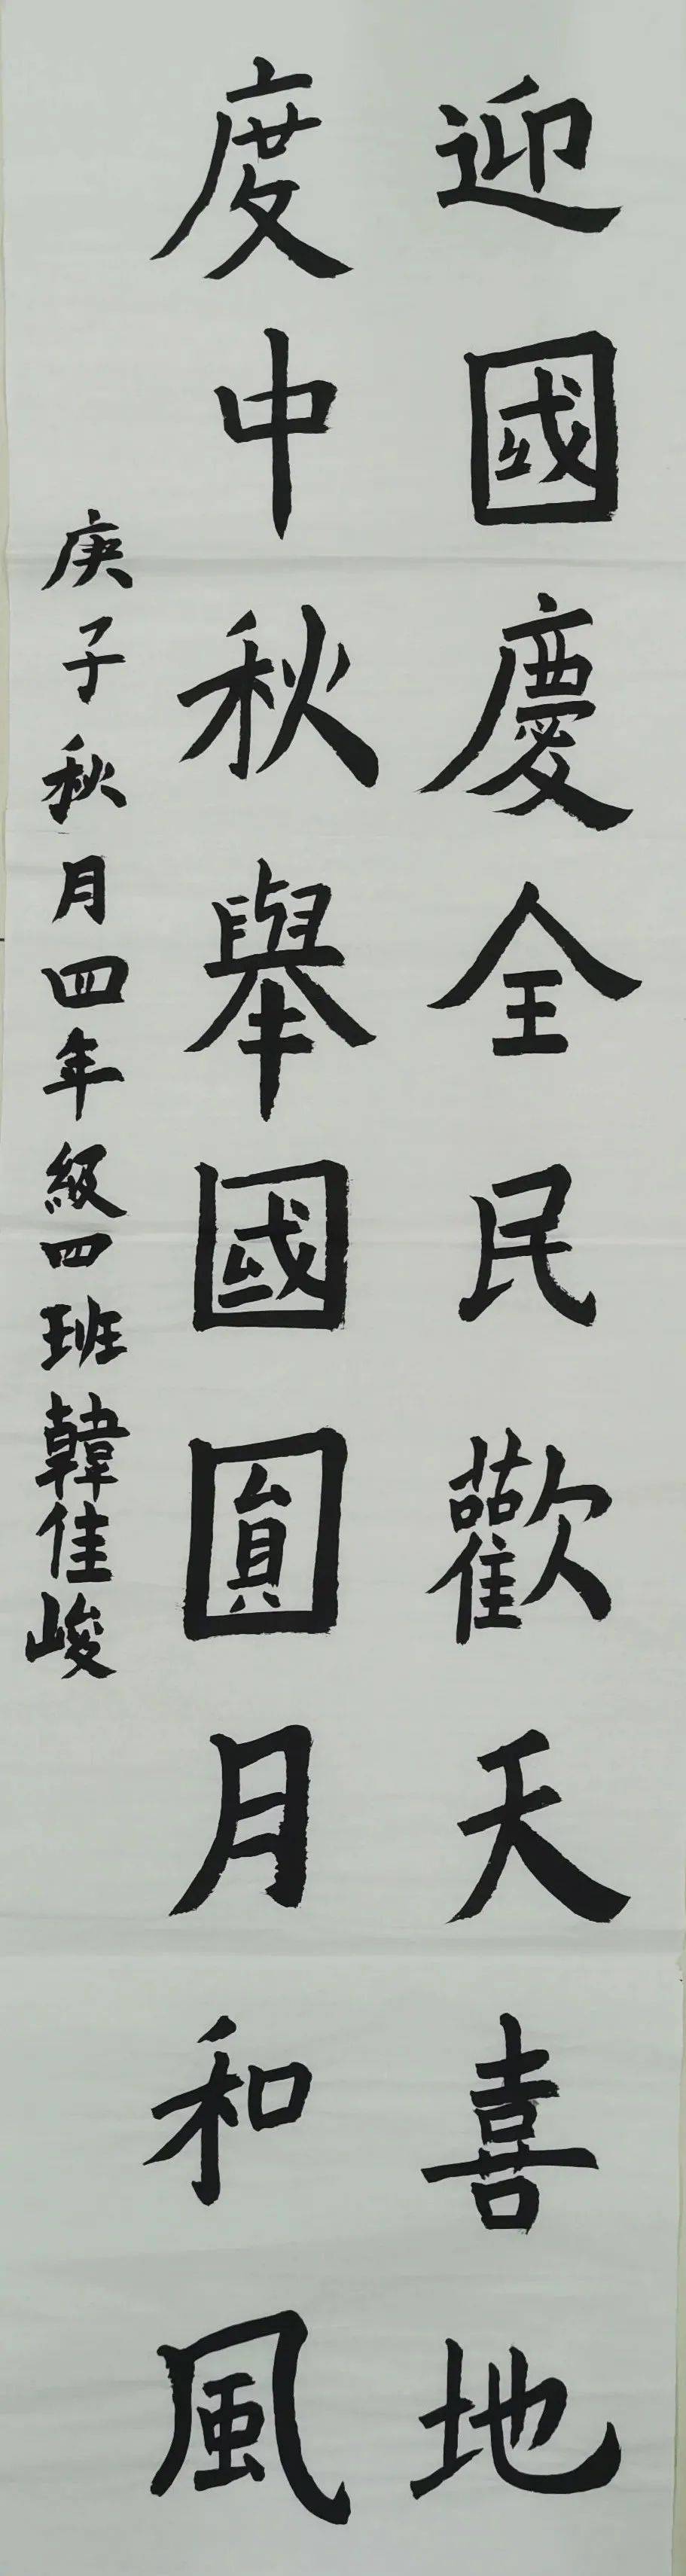 迎國慶全民歡天喜地
度中秋舉國圓月和風
庚子秋月四年級四班韓佳峻